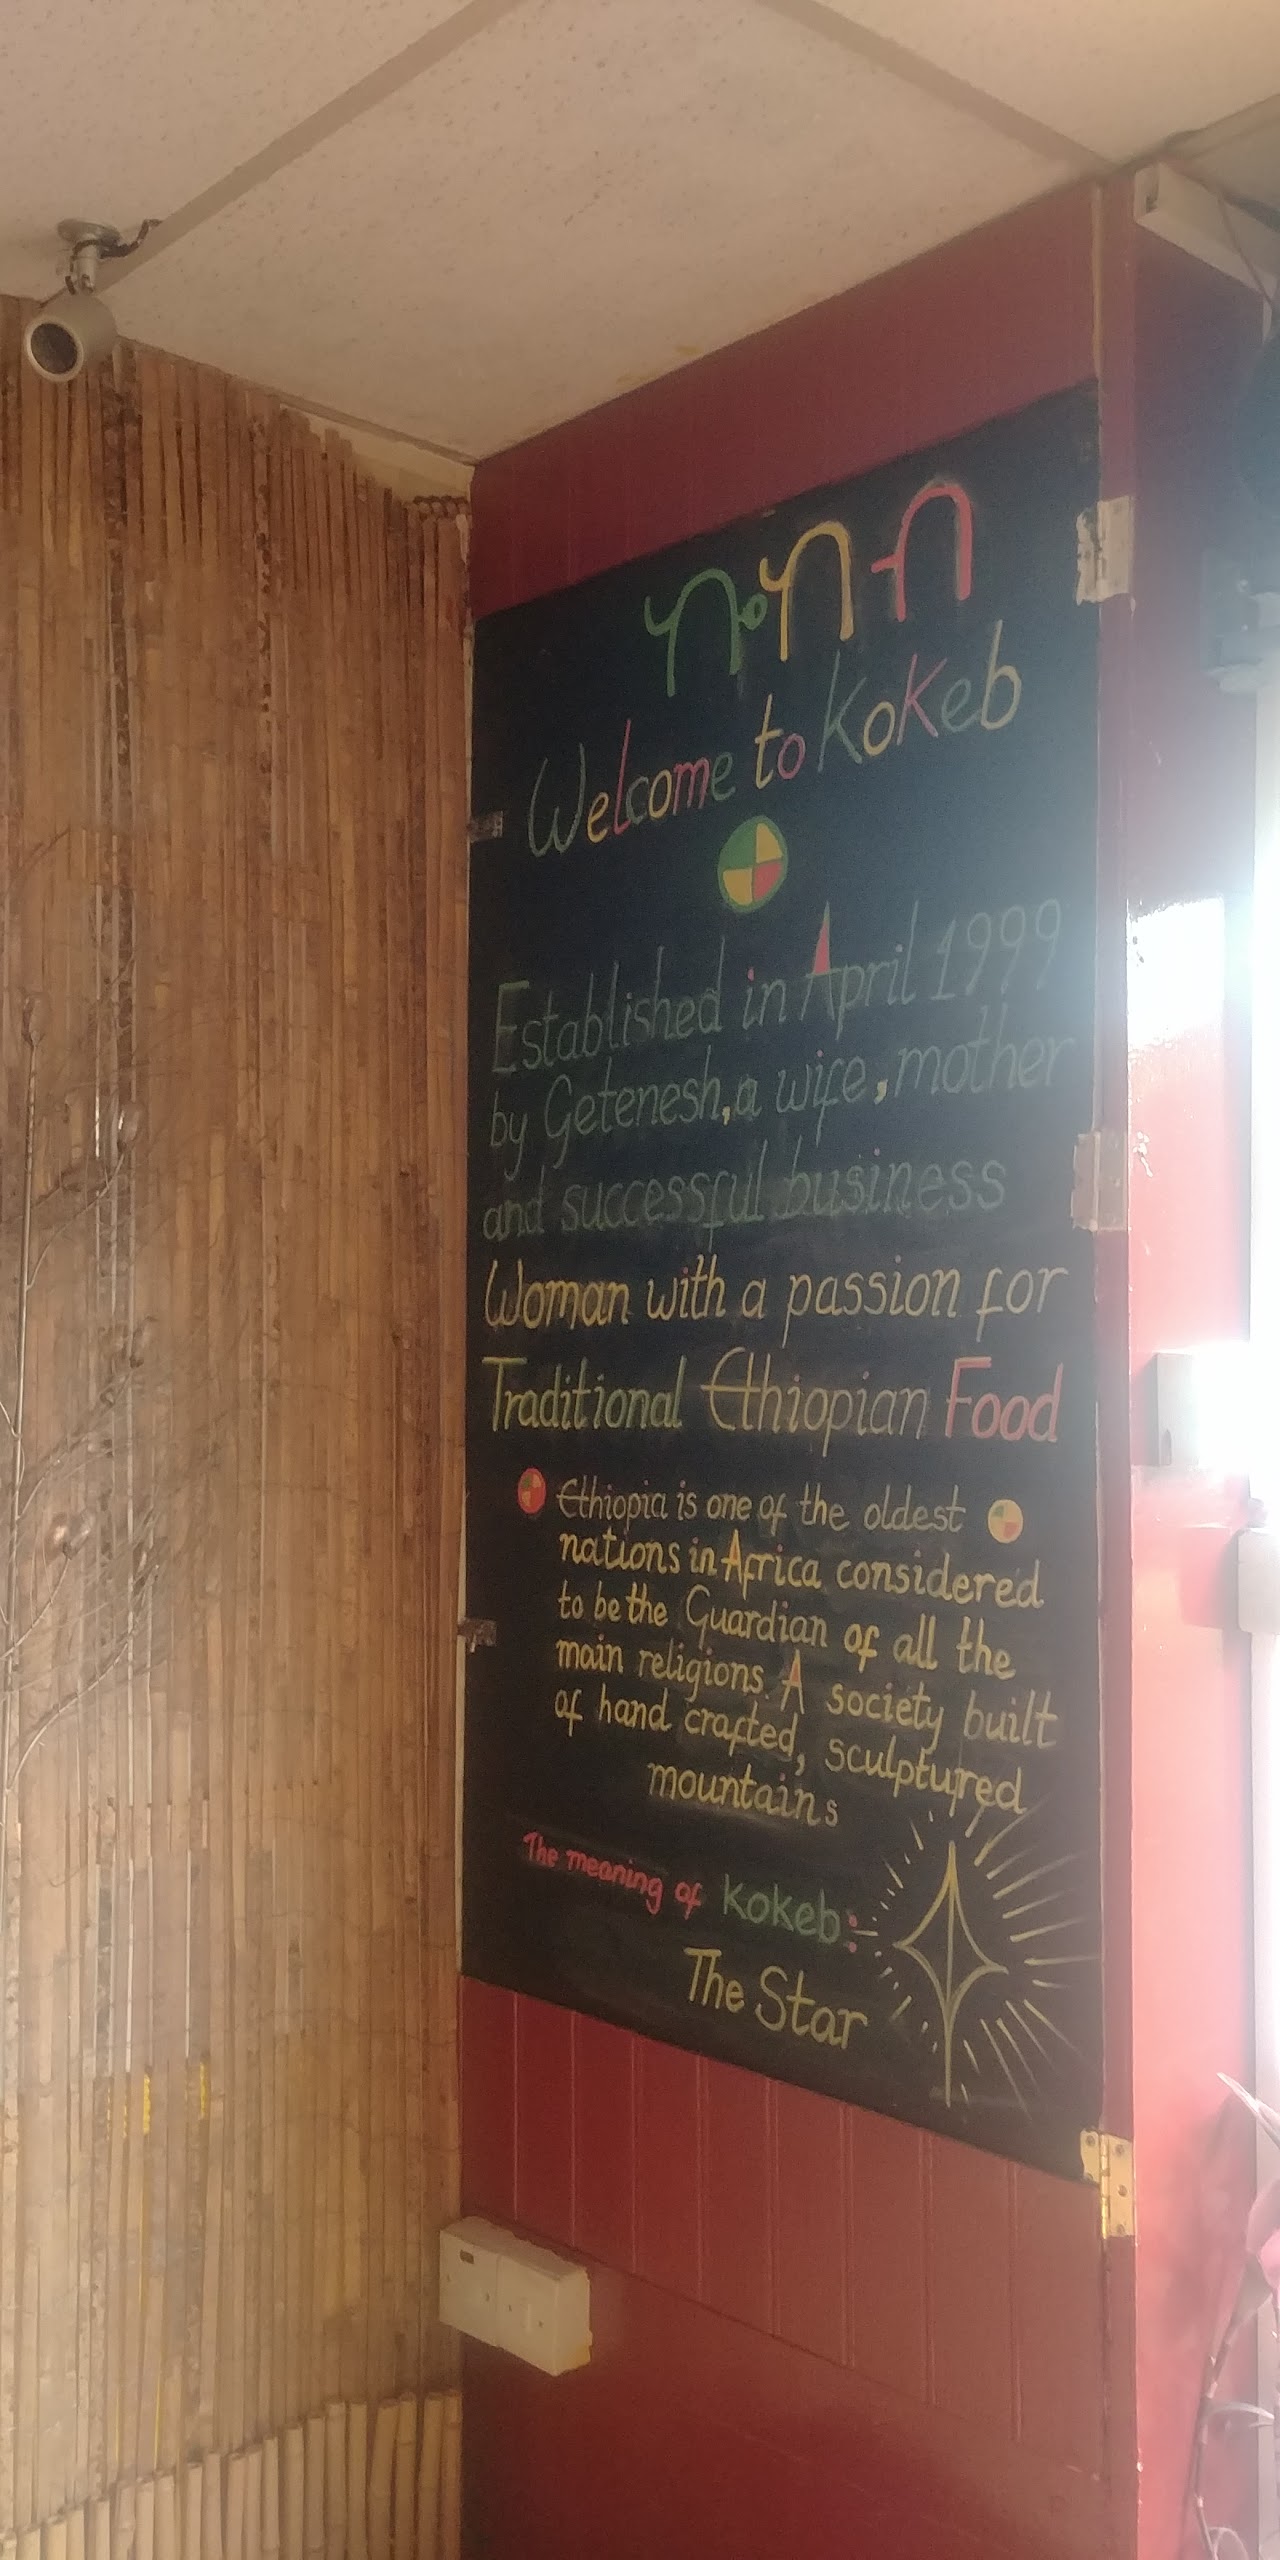 ኮከብ
Welcome to KoKeb
Established in April 1999
by Getenesh, a wife, mother
and successful business
Woman with a passion for
Traditional Ethiopian Food
Ethiopia is one of the oldest
nations in Africa considered
to be the Guardian of all the
main religions. A society built
of hand crafted, sculptured
mountains
The meaning of Kokeb:
The Star